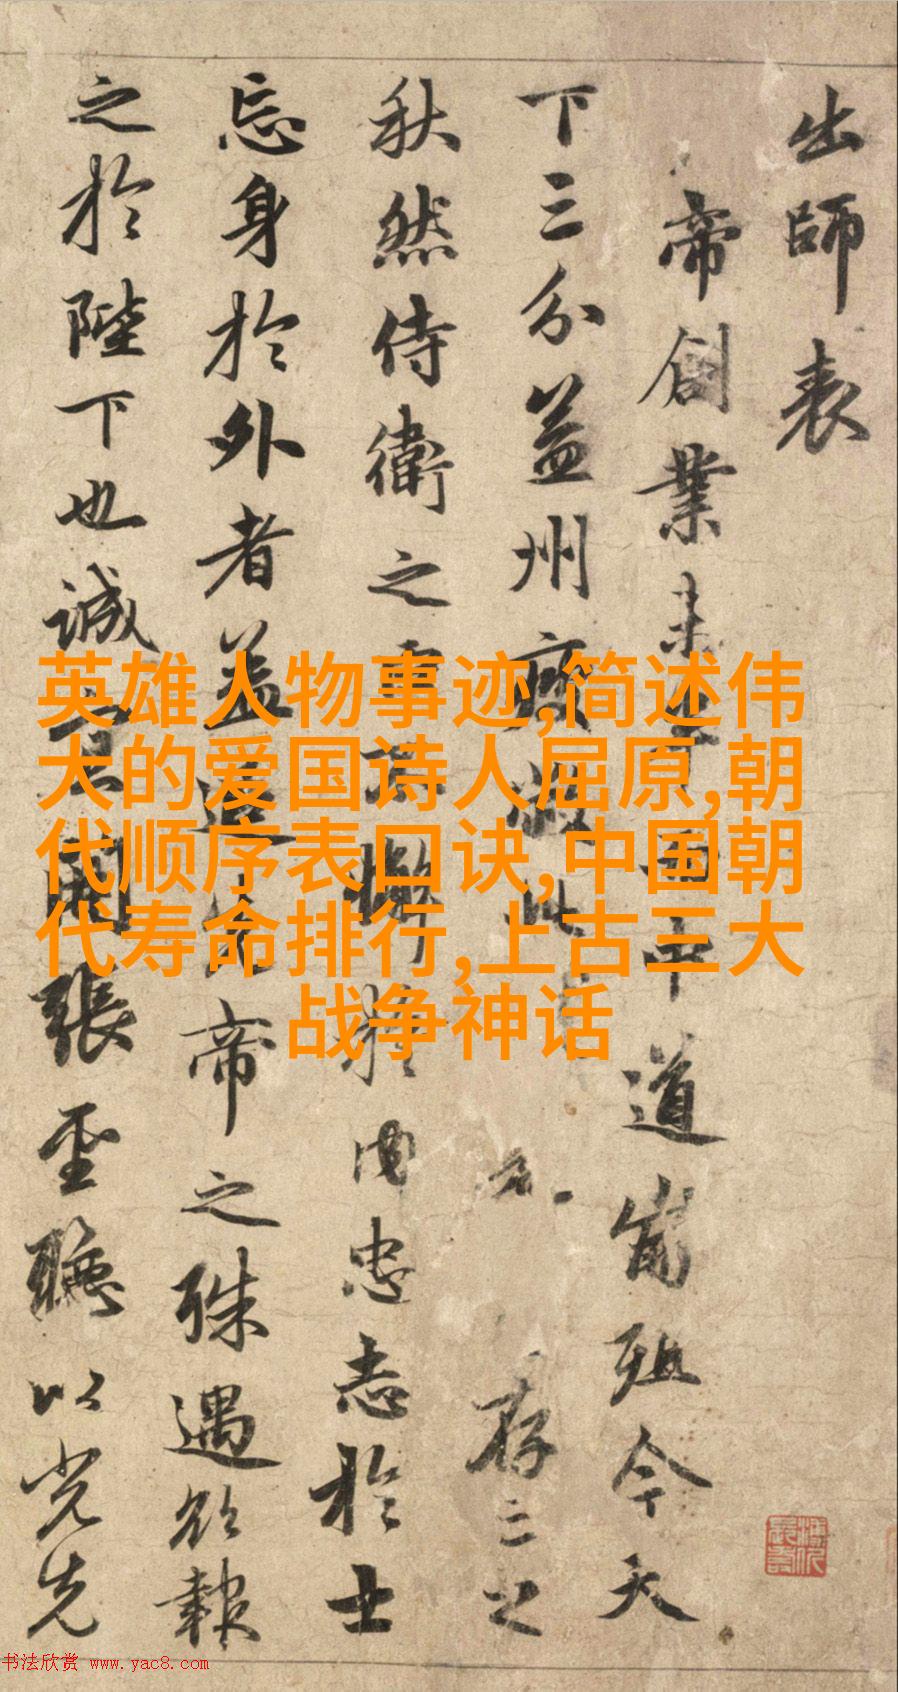 出師表
帝創業未半而中道崩殂今天
下三分益州疲敝此存亡之
秋然侍衛之臣不懈於内忠志於士
忘身於外者蓋追先帝之殊遇欲報
之於陛下也誠宜開張聖聽以光先
英雄人物事迹,简述伟
大的爱国诗人屈原,朝
代顺序表口诀,中国朝
代寿命排行,上古三大
战争神话
书法欣赏 www.yac8.com